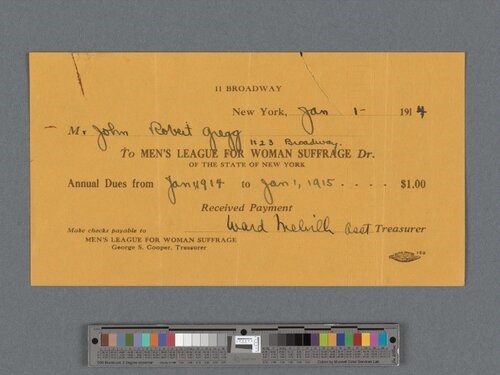 11 BROADWAY
New York, Jan 1- 1914
Mr John Robert Gregg
1123 Broadway.
To MEN'S LEAGUE FOR WOMAN SUFFRAGE Dr.
OF THE STATE OF NEW YORK
Annual Dues from Jan 1, 1914 to Jan 1, 1915 . . . . $1.00
Received Payment
Ward Melvill Asst Treasurer
Make checks payable to
MEN'S LEAGUE FOR WOMAN SUFFRAGE
George S. Cooper, Treasurer